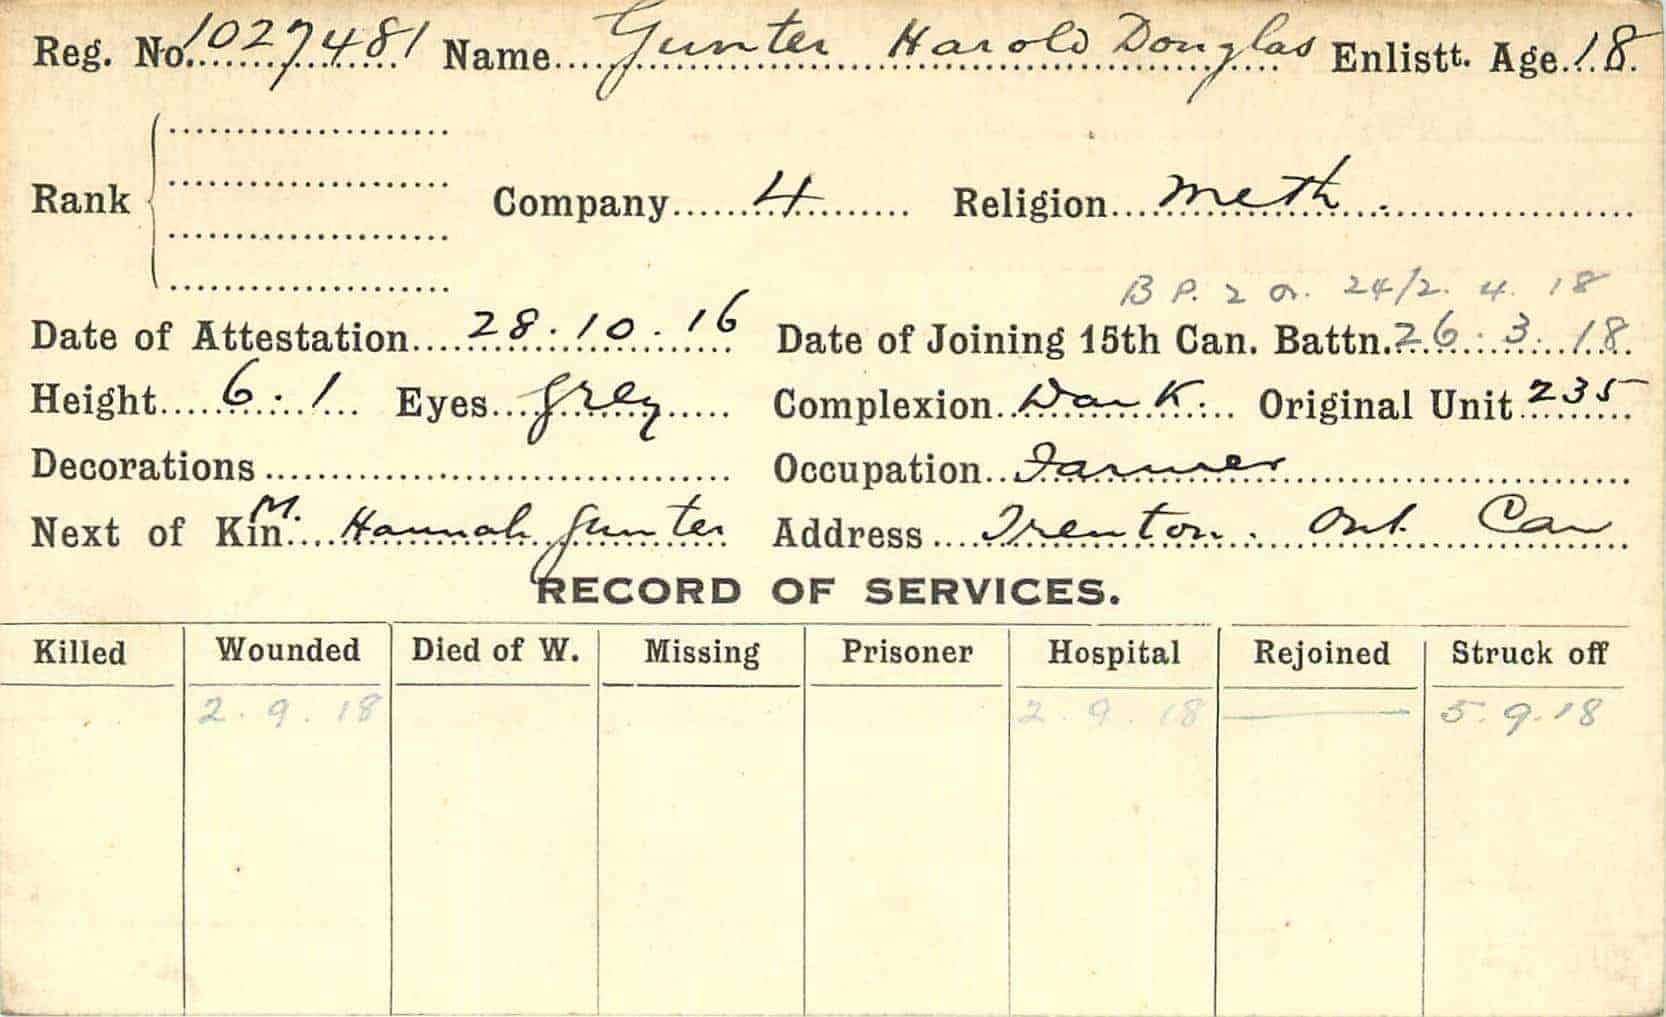 Reg. No. 1027481 Name Gunter Harold Douglas Enlistt. Age 18
Rank Company 4 Religion Meth.
B P. 2 O. 24/2. 4. 18
Date of Attestation 28.10.16 Date of Joining 15th Can. Battn. 26.3.18
Height 6.1 Eyes Grey Complexion Dark Original Unit 235
Decorations Occupation Farmer
Next of Kin M. Hannah Gunter Address Trenton. Ont. Can
RECORD OF SERVICES.
Killed Wounded Died of W. Missing Prisoner Hospital Rejoined Struck off
2.9.18 2.9.18 — 5.9.18